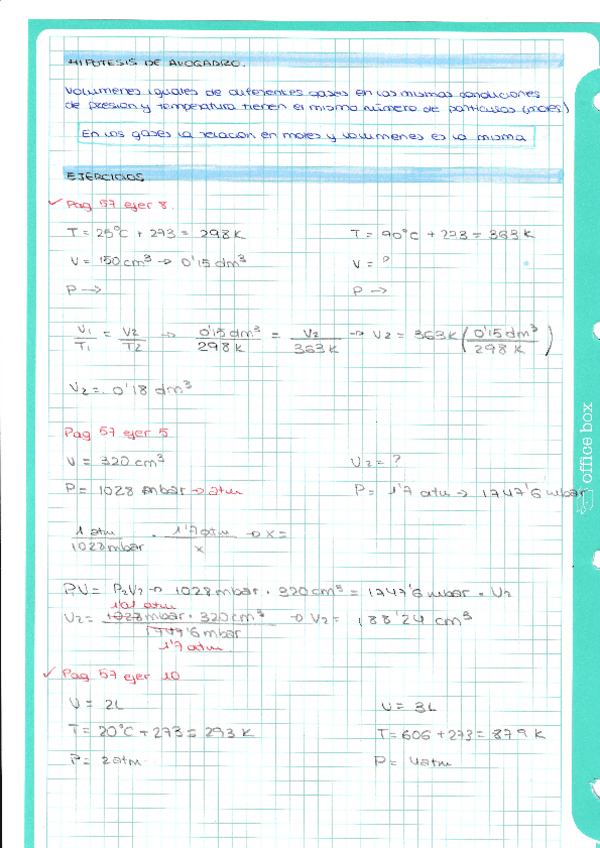 HIPOTESIS DE AVOGADRO.
Volumenes iguales de diferentes gases en las mismas condiciones
de presion y temperatura tienen el mismo número de particulas (moles)
En los gases la relacion en moles y volumenes es la misma
EJERCICIOS
✓ Pag 57 ejer 8.
T = 25°C + 273 = 298 K
T = 90°C + 273 = 363 K
V = 150 cm³ → 0'15 dm³
V = ?
P →
P →
V1/T1 = V2/T2 → 0'15 dm³/298 K = V2/363 K → V2 = 363 K (0'15 dm³/298 K)
V2 = 0'18 dm³
Pag 57 ejer 5
V = 320 cm³
V2 = ?
P = 1028 mbar → atm
P = 1'7 atm → 1747'6 mbar
1 atm/1028 mbar · 1'7 atm/x → x =
PV = P2V2 → 1028 mbar · 320 cm³ = 1747'6 mbar · V2
1'01 atm
V2 = 1028 mbar · 320 cm³/1747'6 mbar → V2 = 188'24 cm³
1'7 atm
✓ Pag 57 ejer 10
V = 2L
V = 3L
T = 20°C + 273 = 293 K
T = 606 + 273 = 879 K
P = 2 atm
P = 4 atm
office box